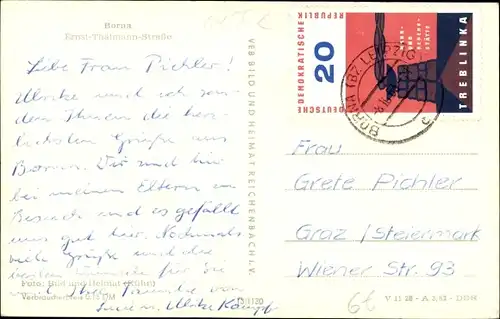 Borna
Ernst-Thälmann-Straße
Liebe Frau Pichler!
Ulrike und ich senden Ihnen die herzlichsten Grüße aus
Borna. Wir sind hier
bei meinen Eltern zu
Besuch und es gefällt
uns gut hier. Nochmals
viele Grüße und die
besten Wünsche für Sie
und Ihre Familie von
Ulrike Kämpf
Foto: Bild und Heimat (Kühn)
Verbraucherpreis 0,15 DM
VEB BILD UND HEIMAT REICHENBACH I. V.
13/1120
DEUTSCHE
DEMOKRATISCHE
REPUBLIK
20
MAHN-
UND
GEDENK-
STÄTTE
TREBLINKA
BORNA (BZ LEIPZIG)
c
Frau
Grete Pichler
Graz / Steiermark
Wiener Str. 93
6t
V 11 28 - A 2/63 - DDR